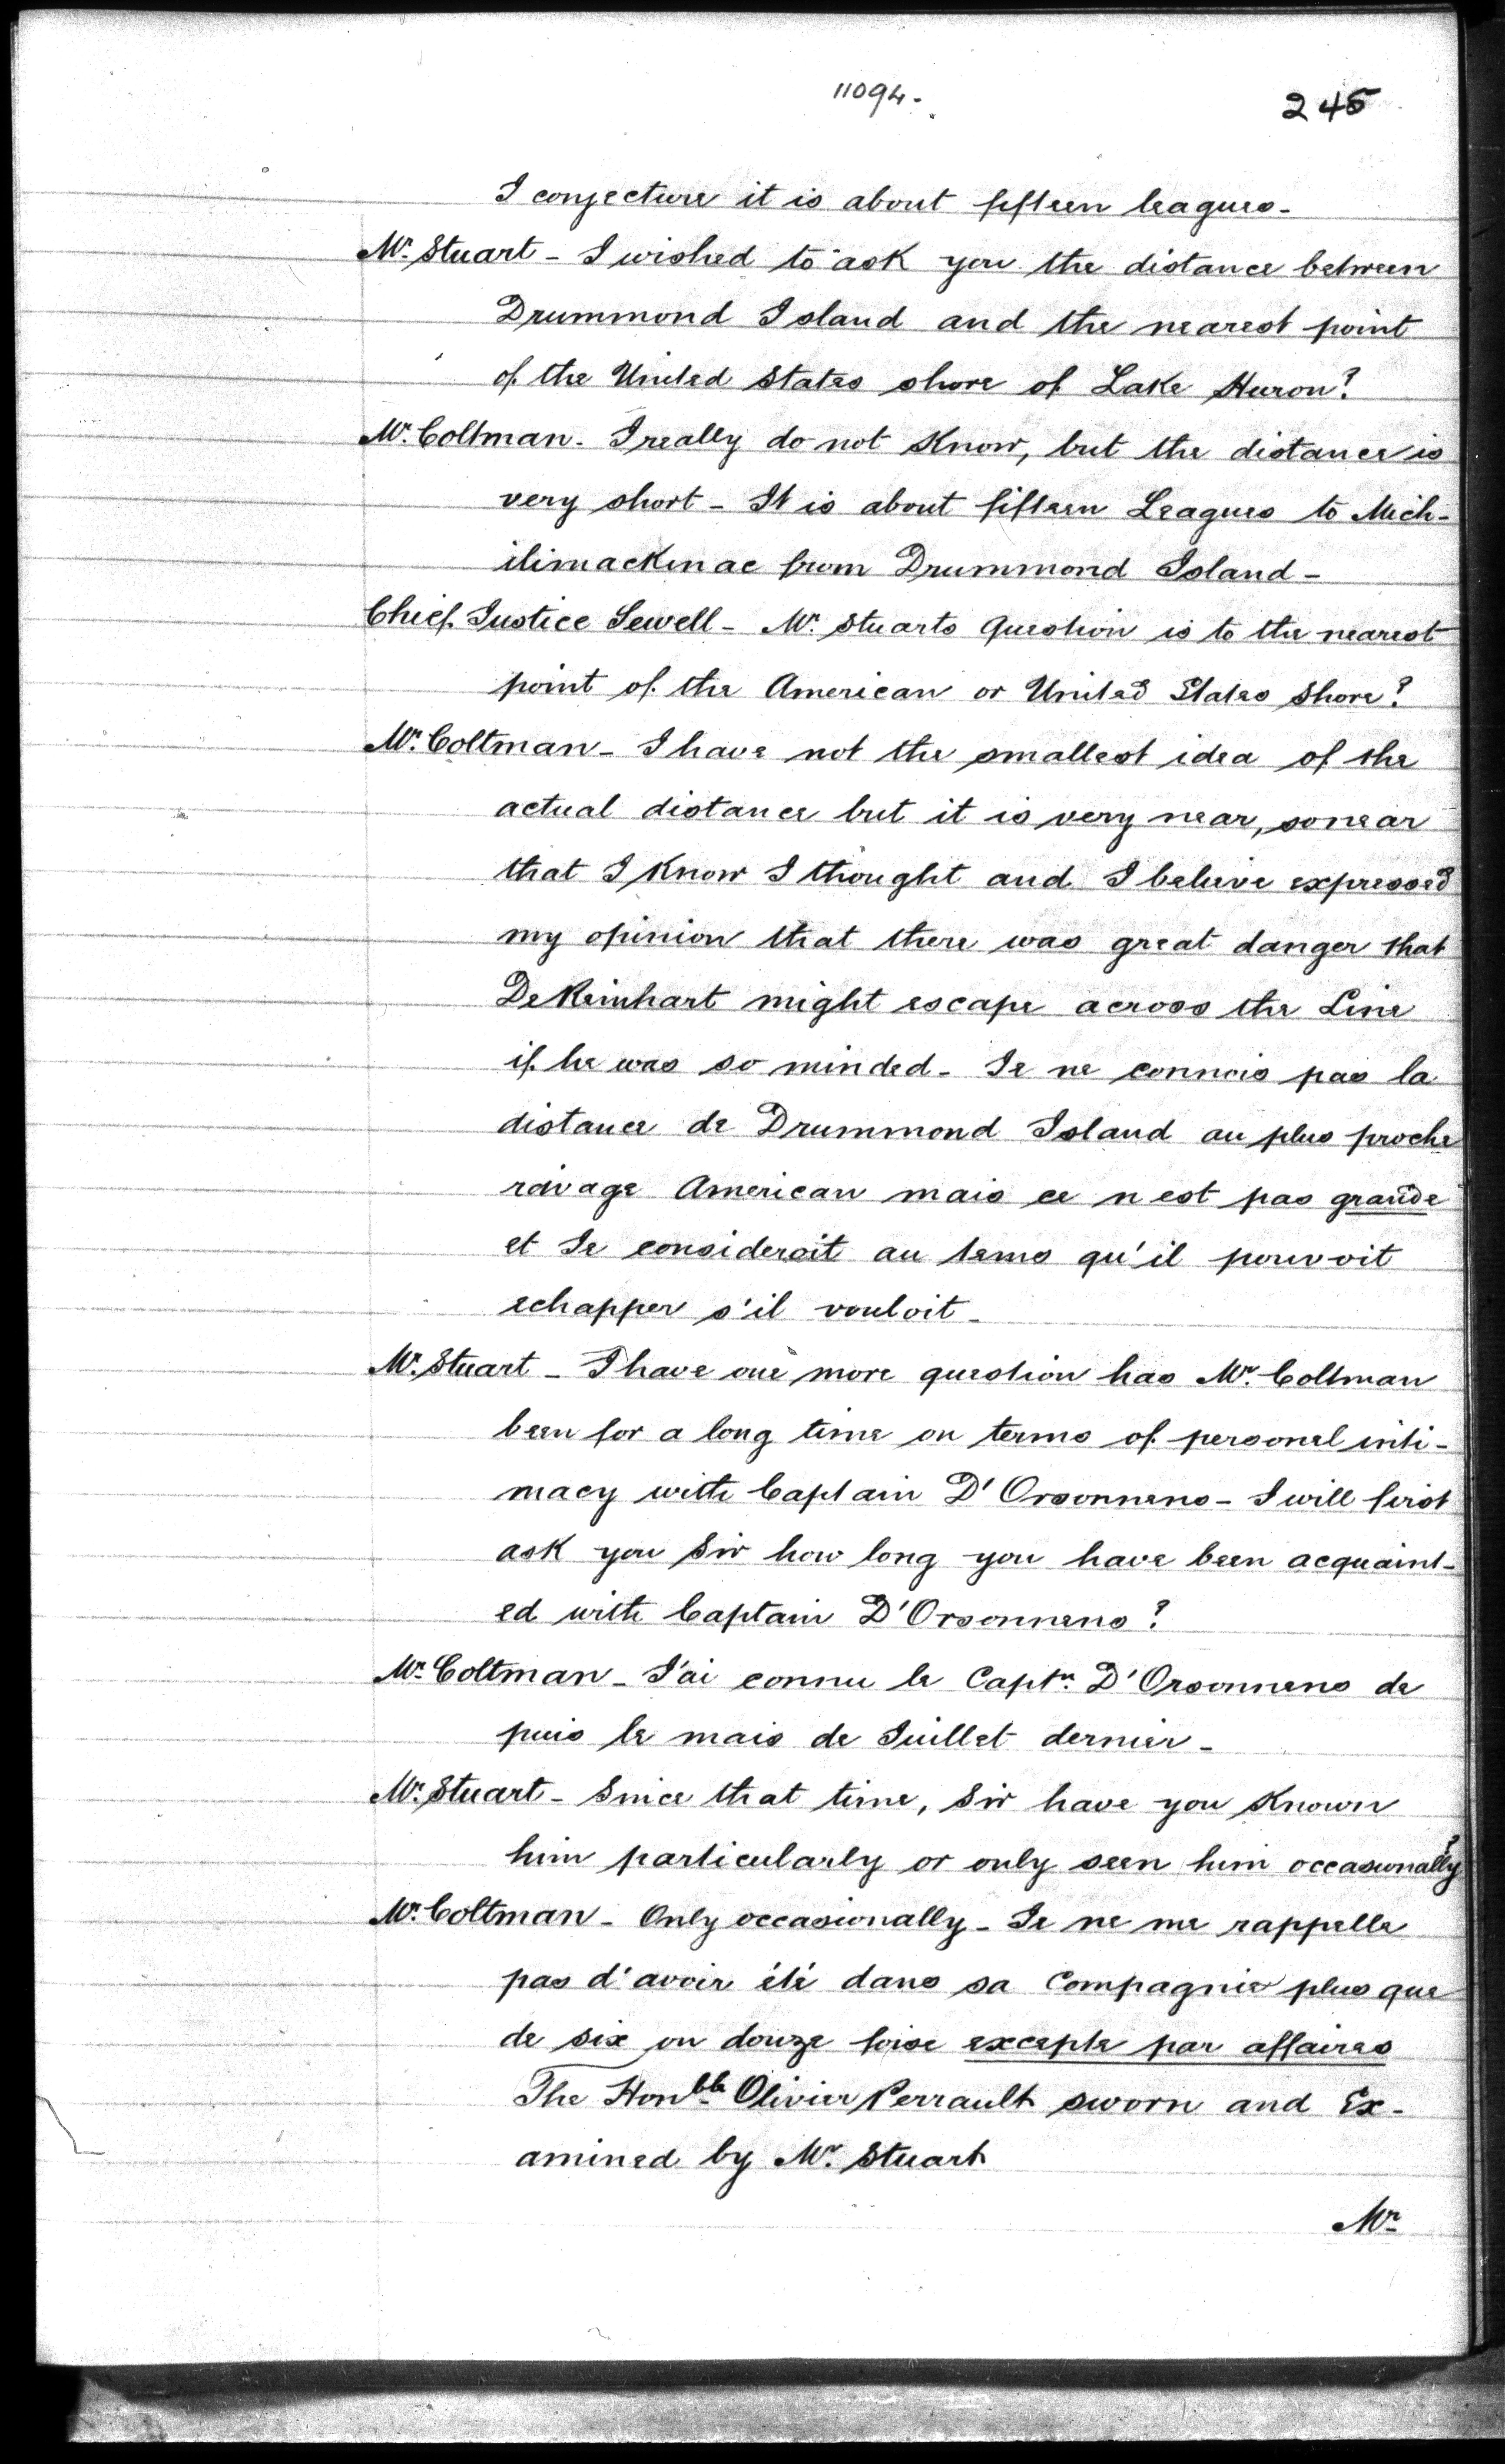 11094.
245
I conjecture it is about fifteen leagues-
Mr. Stuart - I wished to ask you the distance between
Drummond Island and the nearest point
of the United States shore of Lake Huron?
Mr. Coltman - I really do not Know, but the distance is
very short - It is about fifteen Leagues to Mich-
ilimackinac from Drummond Island -
Chief Justice Sewell - Mr. Stuarts Question is to the nearest
point of the American or United States Shore?
Mr. Coltman - I have not the smallest idea of the
actual distance but it is very near, so near
that I Know I thought and I believe expressed
my opinion that there was great danger that
De Reinhart might escape across the Line
if he was so minded - Je ne connois pas la
distance de Drummond Island au plus proche
rivage American mais ce n est pas grande
et Je considerait au tems qu'il pouvoit
echapper s'il vouloit -
Mr. Stuart - I have one more question has Mr. Coltman
been for a long time on terms of personal inti-
macy with Captain D'Orsonnens - I will first
ask you Sir how long you have been acquaint-
ed with Captain D'Orsonnens?
Mr. Coltman - J'ai connu le Captn. D'Orsonnens de
puis le mais de Juillet dernier -
Mr. Stuart - Since that time, Sir have you Known
him particularly or only seen him occasionally?
Mr. Coltman - Only occasionally - Je ne me rappelle
pas d'avoir été dans sa Compagnie plus que
de six ou douze foise excepte par affaires
The Honble Olivier Perrault sworn and Ex-
amined by Mr. Stuart
Mr